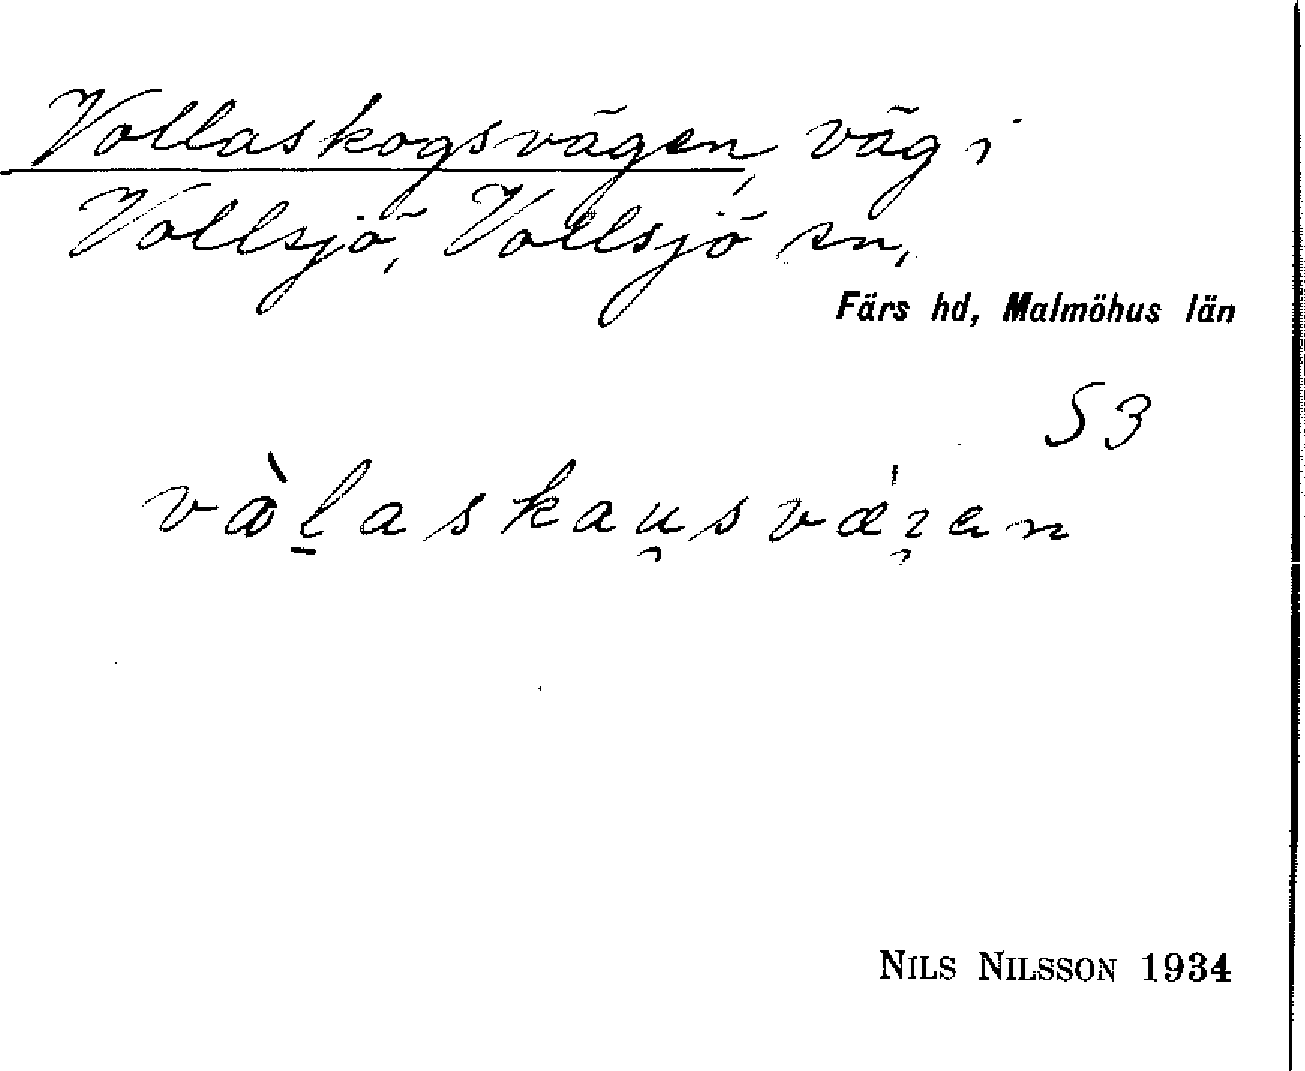 Vollaskogsvägen, väg i
Vollsjö, Vollsjö sn,
Färs hd, Malmöhus län
53
NILS NILSSON 1934